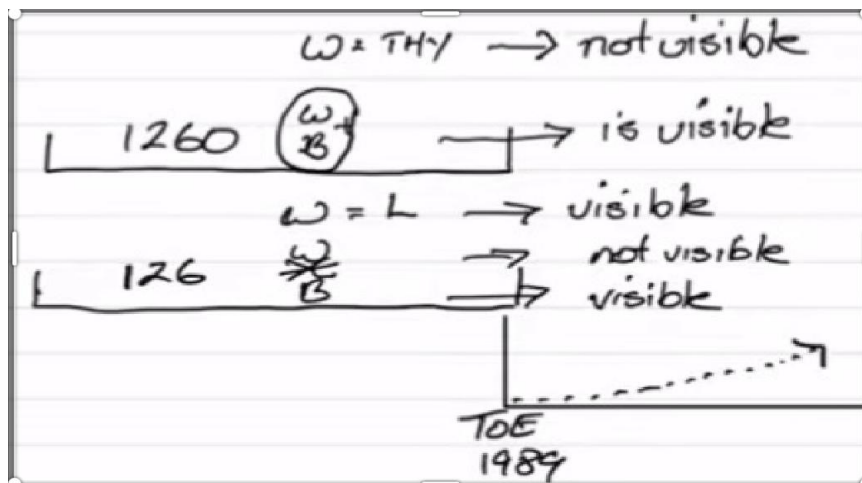 W = THY → not visible
1260 W + B → is visible
W = L → visible
W → not visible
126 B → visible
TOE
1989